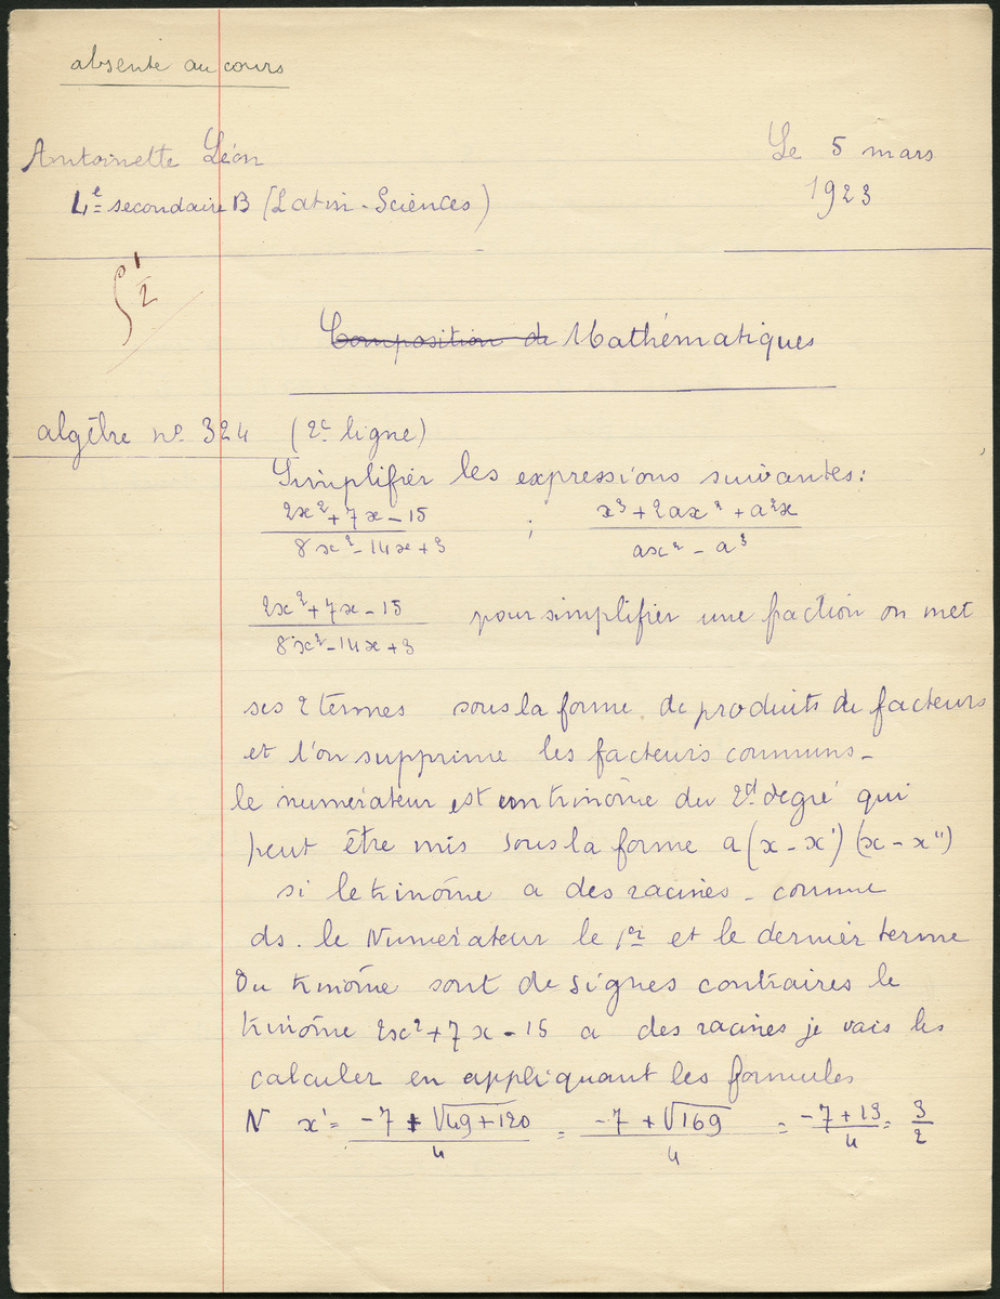 absente au cours
Antoinette Léon
Le 5 mars
4e secondaire B (Latin-Sciences)
1923
1/2
Composition de Mathématiques
algèbre no 324 (2e ligne)
Simplifier les expressions suivantes:
2x²+7x-15 ; x³+2ax²+a²x
8x²-14x+3 ax²-a³
2x²+7x-15 pour simplifier une fraction on met
8x²-14x+3
ses 2 termes sous la forme de produits de facteurs
et l'on supprime les facteurs communs-
le numérateur est un trinôme du 2d degré qui
peut être mis sous la forme a(x-x')(x-x")
si le trinôme a des racines - comme
ds. le Numérateur le 1er et le dernier terme
Du trinôme sont de signes contraires le
trinôme 2x²+7x-15 a des racines je vais les
calculer en appliquant les formules
N x'= -7+√49+120 = -7+√169 = -7+13 = 3
4 4 4 2